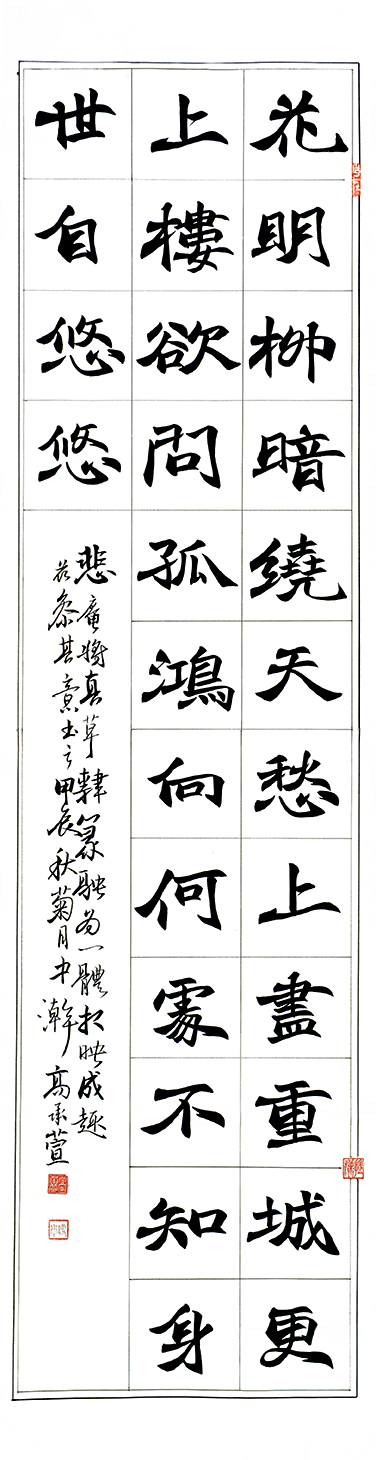 花明柳暗繞天愁上盡重城更
上樓欲問孤鴻向何處不知身
世自悠悠
悲庵將真草隸篆融為一體相映成趣
茲參其意書之甲辰秋菊月中澣高承萱